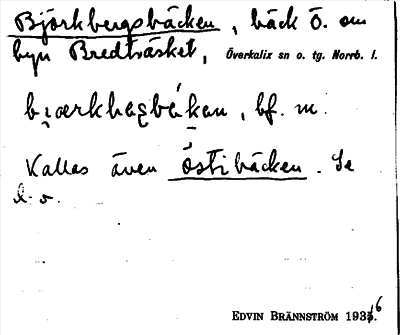 Björkbergsbäcken, bäck Ö. om
byn Bredträsket, Överkalix sn o. tg. Norrb. l.
bf. m.
Kallas även östibäcken. Se
d. o.
EDVIN BRÄNNSTRÖM 1936.